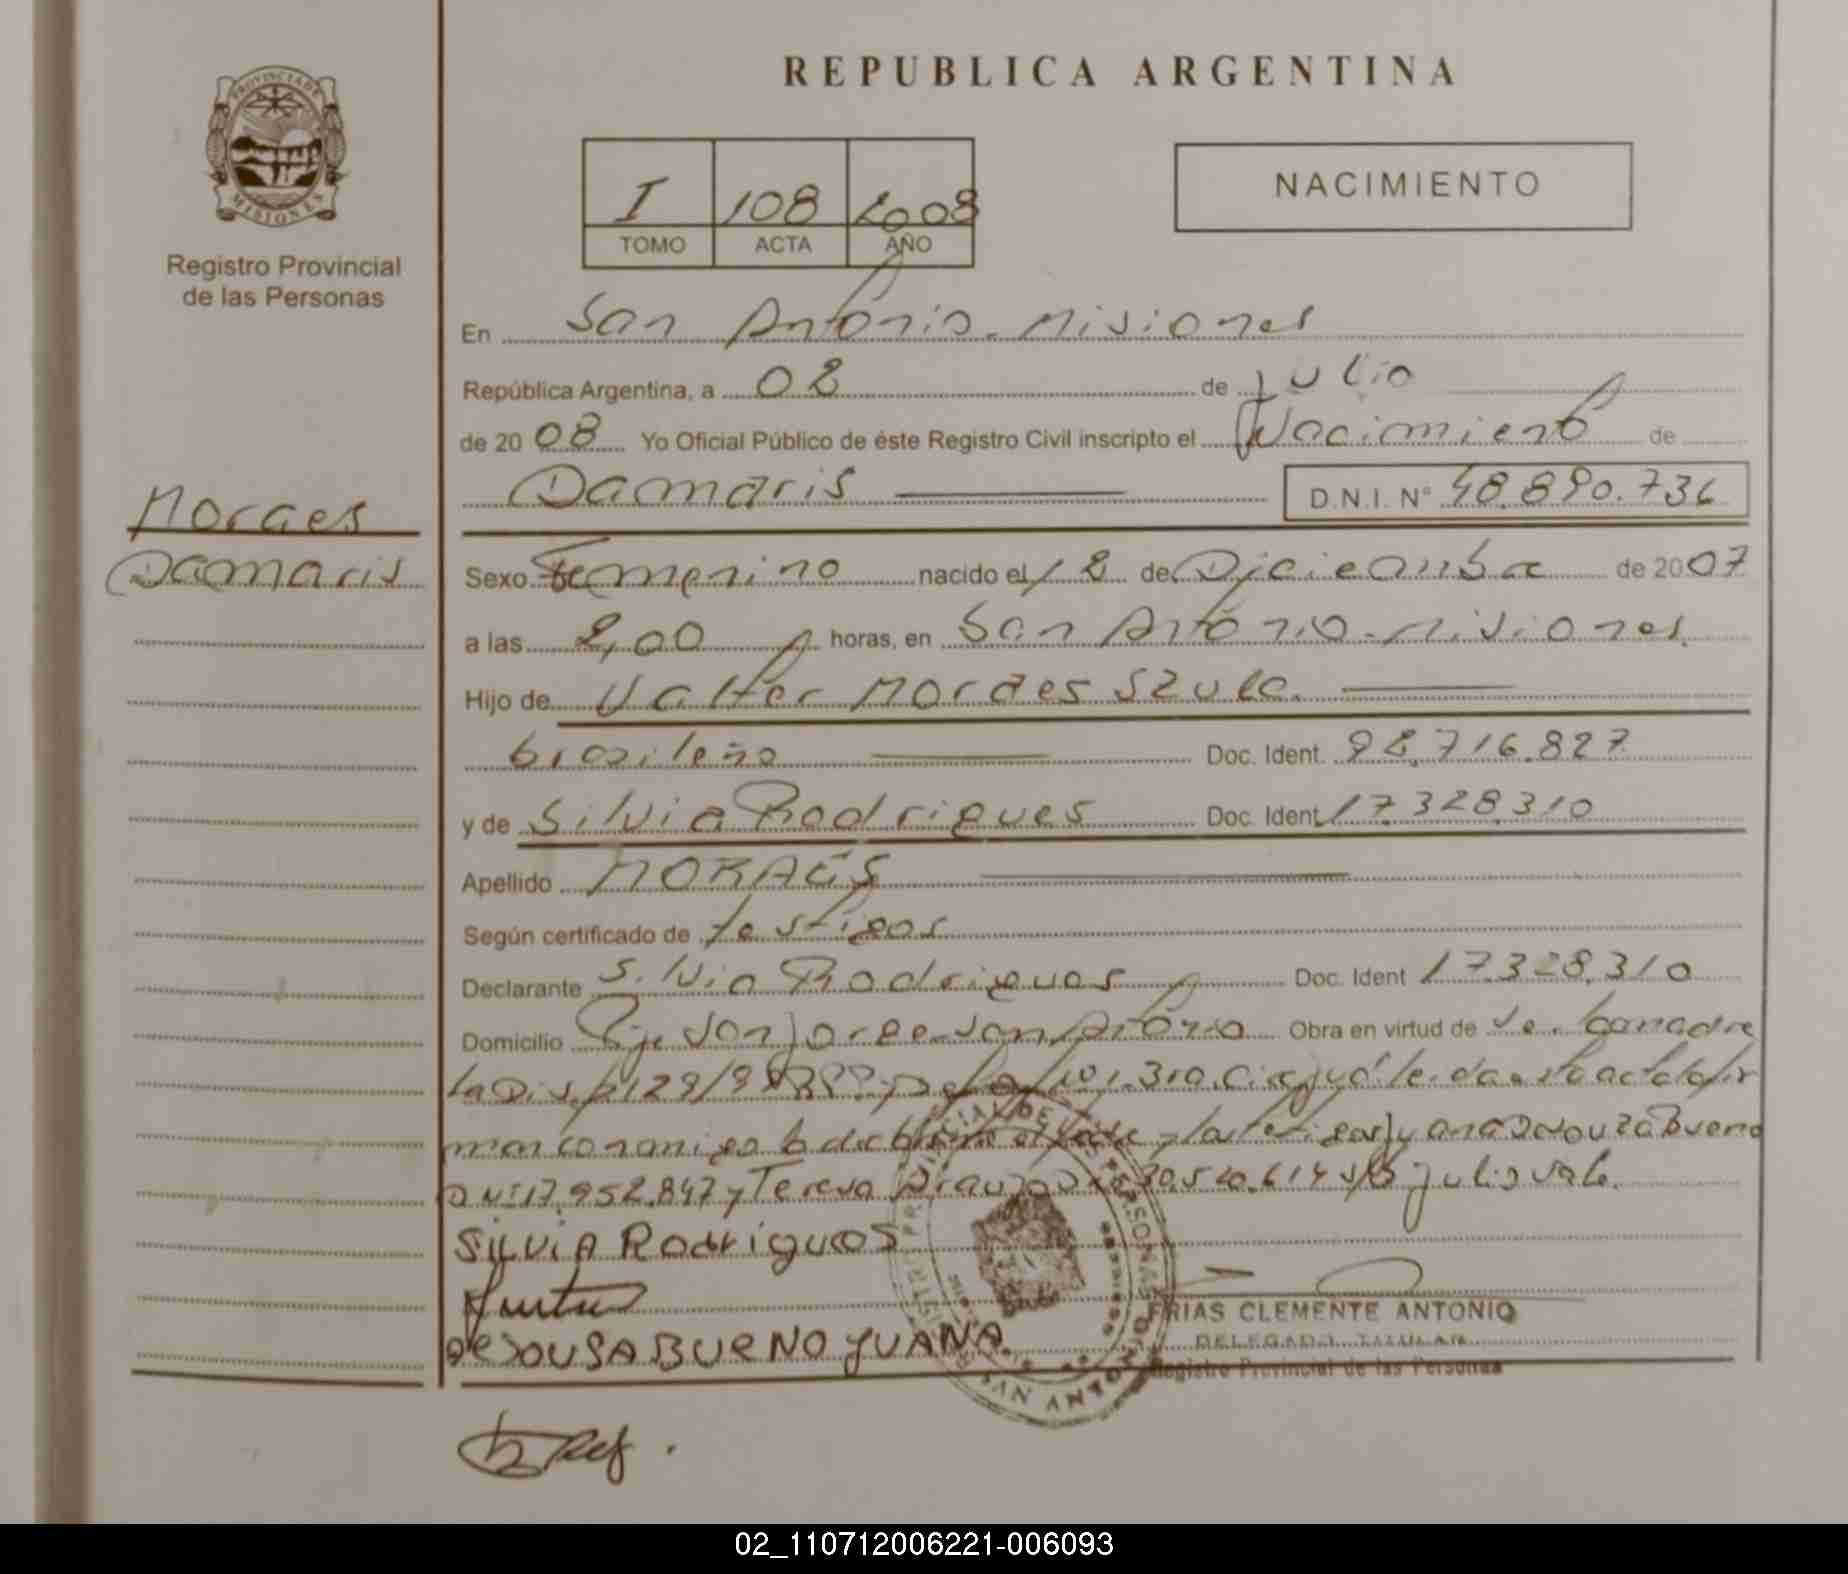 PROVINCIA DE
MISIONES
Registro Provincial
de las Personas
Moraes
Damaris
REPUBLICA ARGENTINA
I 108 2008
TOMO ACTA AÑO
NACIMIENTO
En San Antonio - Misiones
República Argentina, a 02 de Julio
de 2008 Yo Oficial Público de éste Registro Civil inscripto el Nacimiento de
Damaris D.N.I. Nº 48.890.736
Sexo Femenino nacido el 12 de Diciembre de 2007
a las 2,00 horas, en San Antonio - Misiones.
Hijo de Valter Moraes Szulc.
brasileño Doc. Ident. 92.716.827
y de Silvia Rodrigues Doc. Ident 17.328.310
Apellido MORAES
Según certificado de testigos
Declarante Silvia Rodrigues Doc. Ident 17.328.310
Domicilio Pje San Jorge - San Antonio Obra en virtud de
la Dis. 2129/99
Bueno
DNI 17.952.847 y Teresa julio vale.
SILVIA Rodrigues
DE SOUSA BUENO JUANA
FRIAS CLEMENTE ANTONIO
DELEGADO TITULAR
Registro Provincial de las Personas
02_110712006221-006093